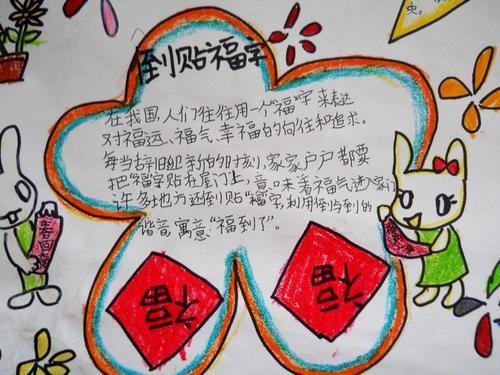 央。
倒贴福字
在我国,人们往往用一个"福"字来表达
对福运、福气、幸福的向往和追求。
每当辞旧迎新的时刻,家家户户都要
把"福"字贴在屋门上,意味着福气进入家门
许多地方还倒贴"福"字,利用倒与到的
谐音,寓意"福到了"。
春回
福
福